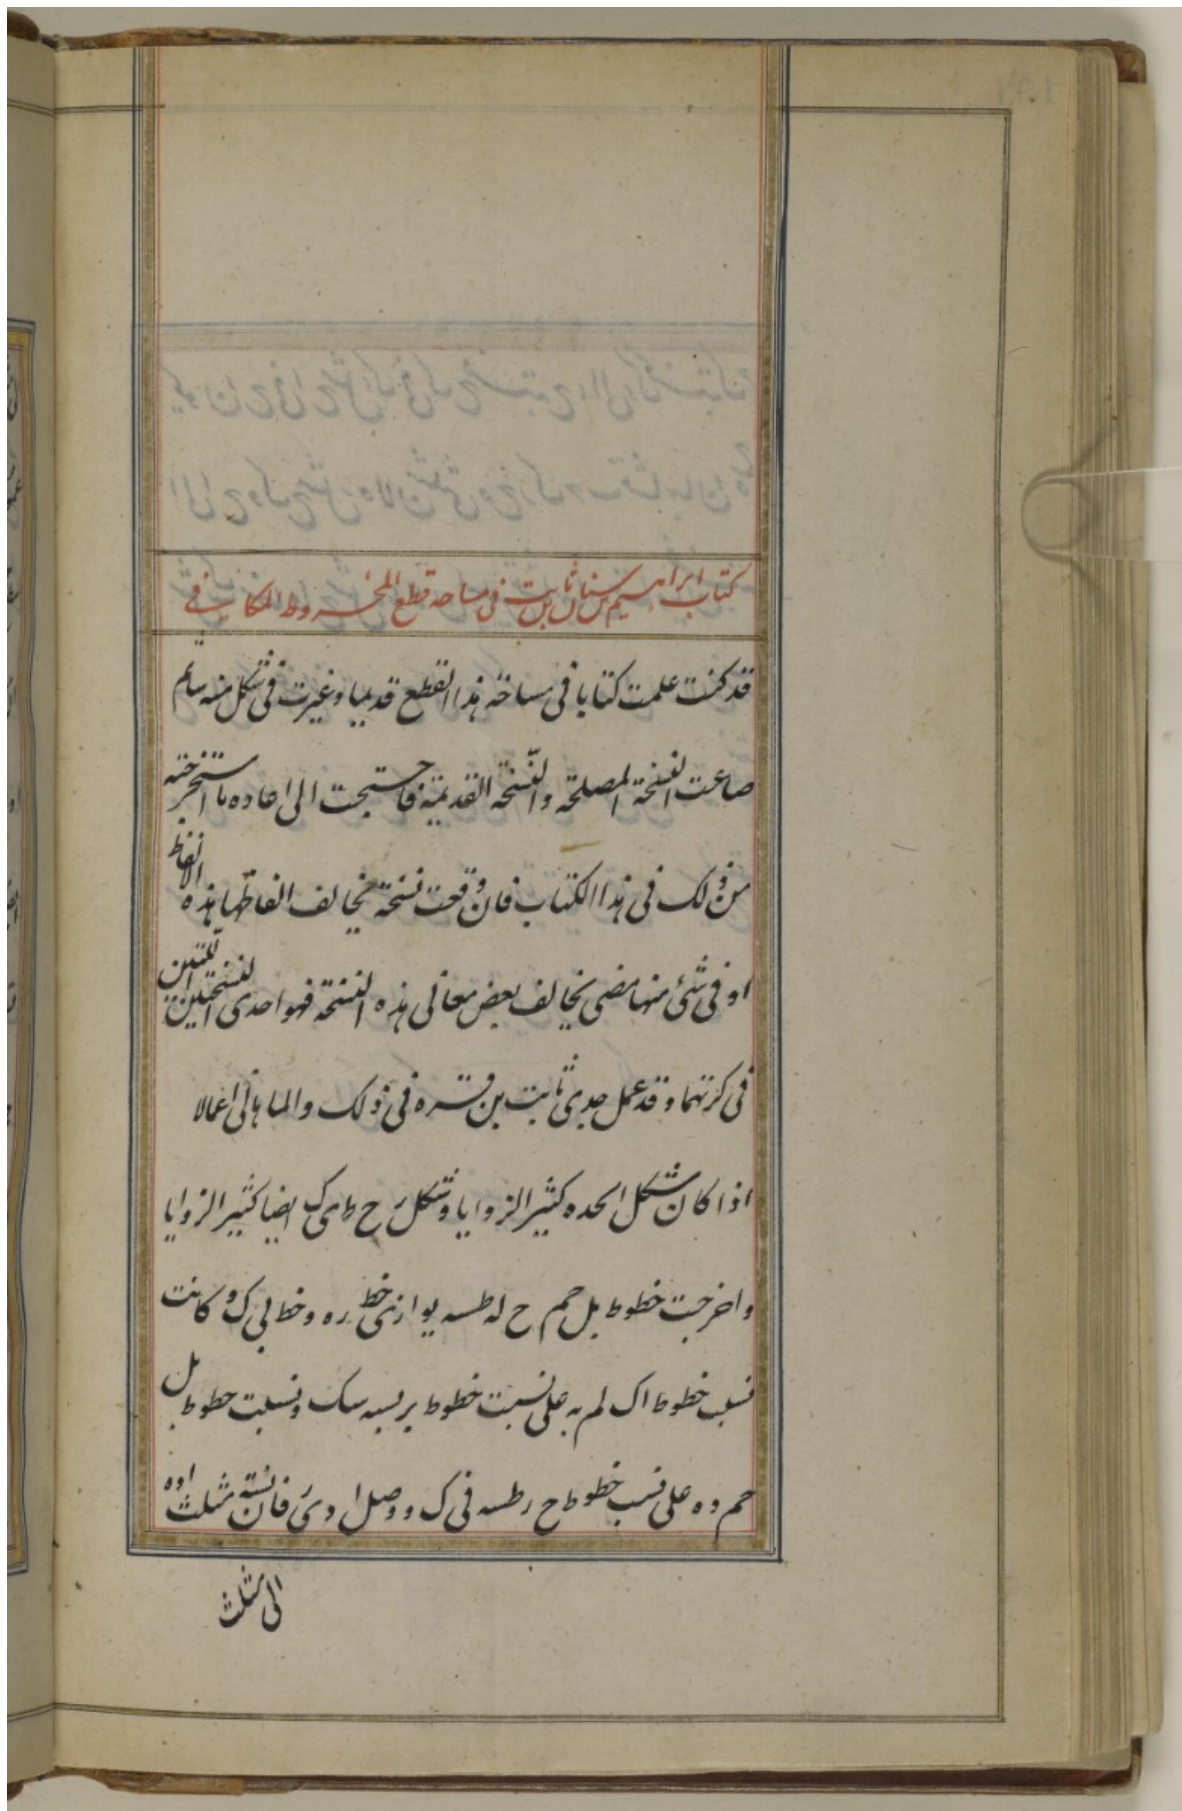 كتاب ابراهيم بن سنان بن ثابت فى مساحه قطع المخروط المكافى
قد كنت علمت كتابا فى مساخة هذا القطع قديما و غيرت فى شكل منه ثم
ضاعت النسخة المصلحة والنسخه القديمة فاحتجت الى اعاده ما استخرجته
من ذلك فى هذا الكتاب فان وقعت نسخة تخالف الفاظها هذه الالفاظ
او فى شئ منها مضى يخالف بعض معانى هذه النسخة فهو احدى النسختين اللتين
فى كرتهما و قد عمل جدى ثابت بن قره فى ذلك والماهانى اعمالا
اذا كان شكل ا ب ح د ه كثير الزوايا و شكل ر ح ط ى ك ايضا كثير الزوايا
و اخرجت خطوط بل حم ح له طسه يوازى خط ره و خط لى ك و كانت
نسب خطوط اك لم به على نسبت خطوط بر سه سك و نسبت خطوط بل
حم ده على نسب خطوط ح ر طسه فى ك و وصل ا د ى ر فان نسبة مثلث اده
الى مثلث